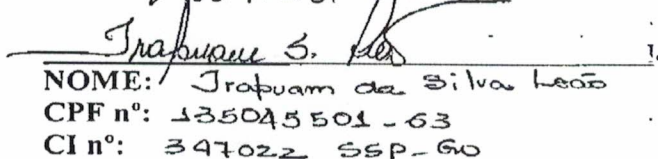 Irapuam S. Leão
NOME: Irapuam da Silva Leão
CPF nº: 135045501-63
CI nº: 347022 SSP-GO